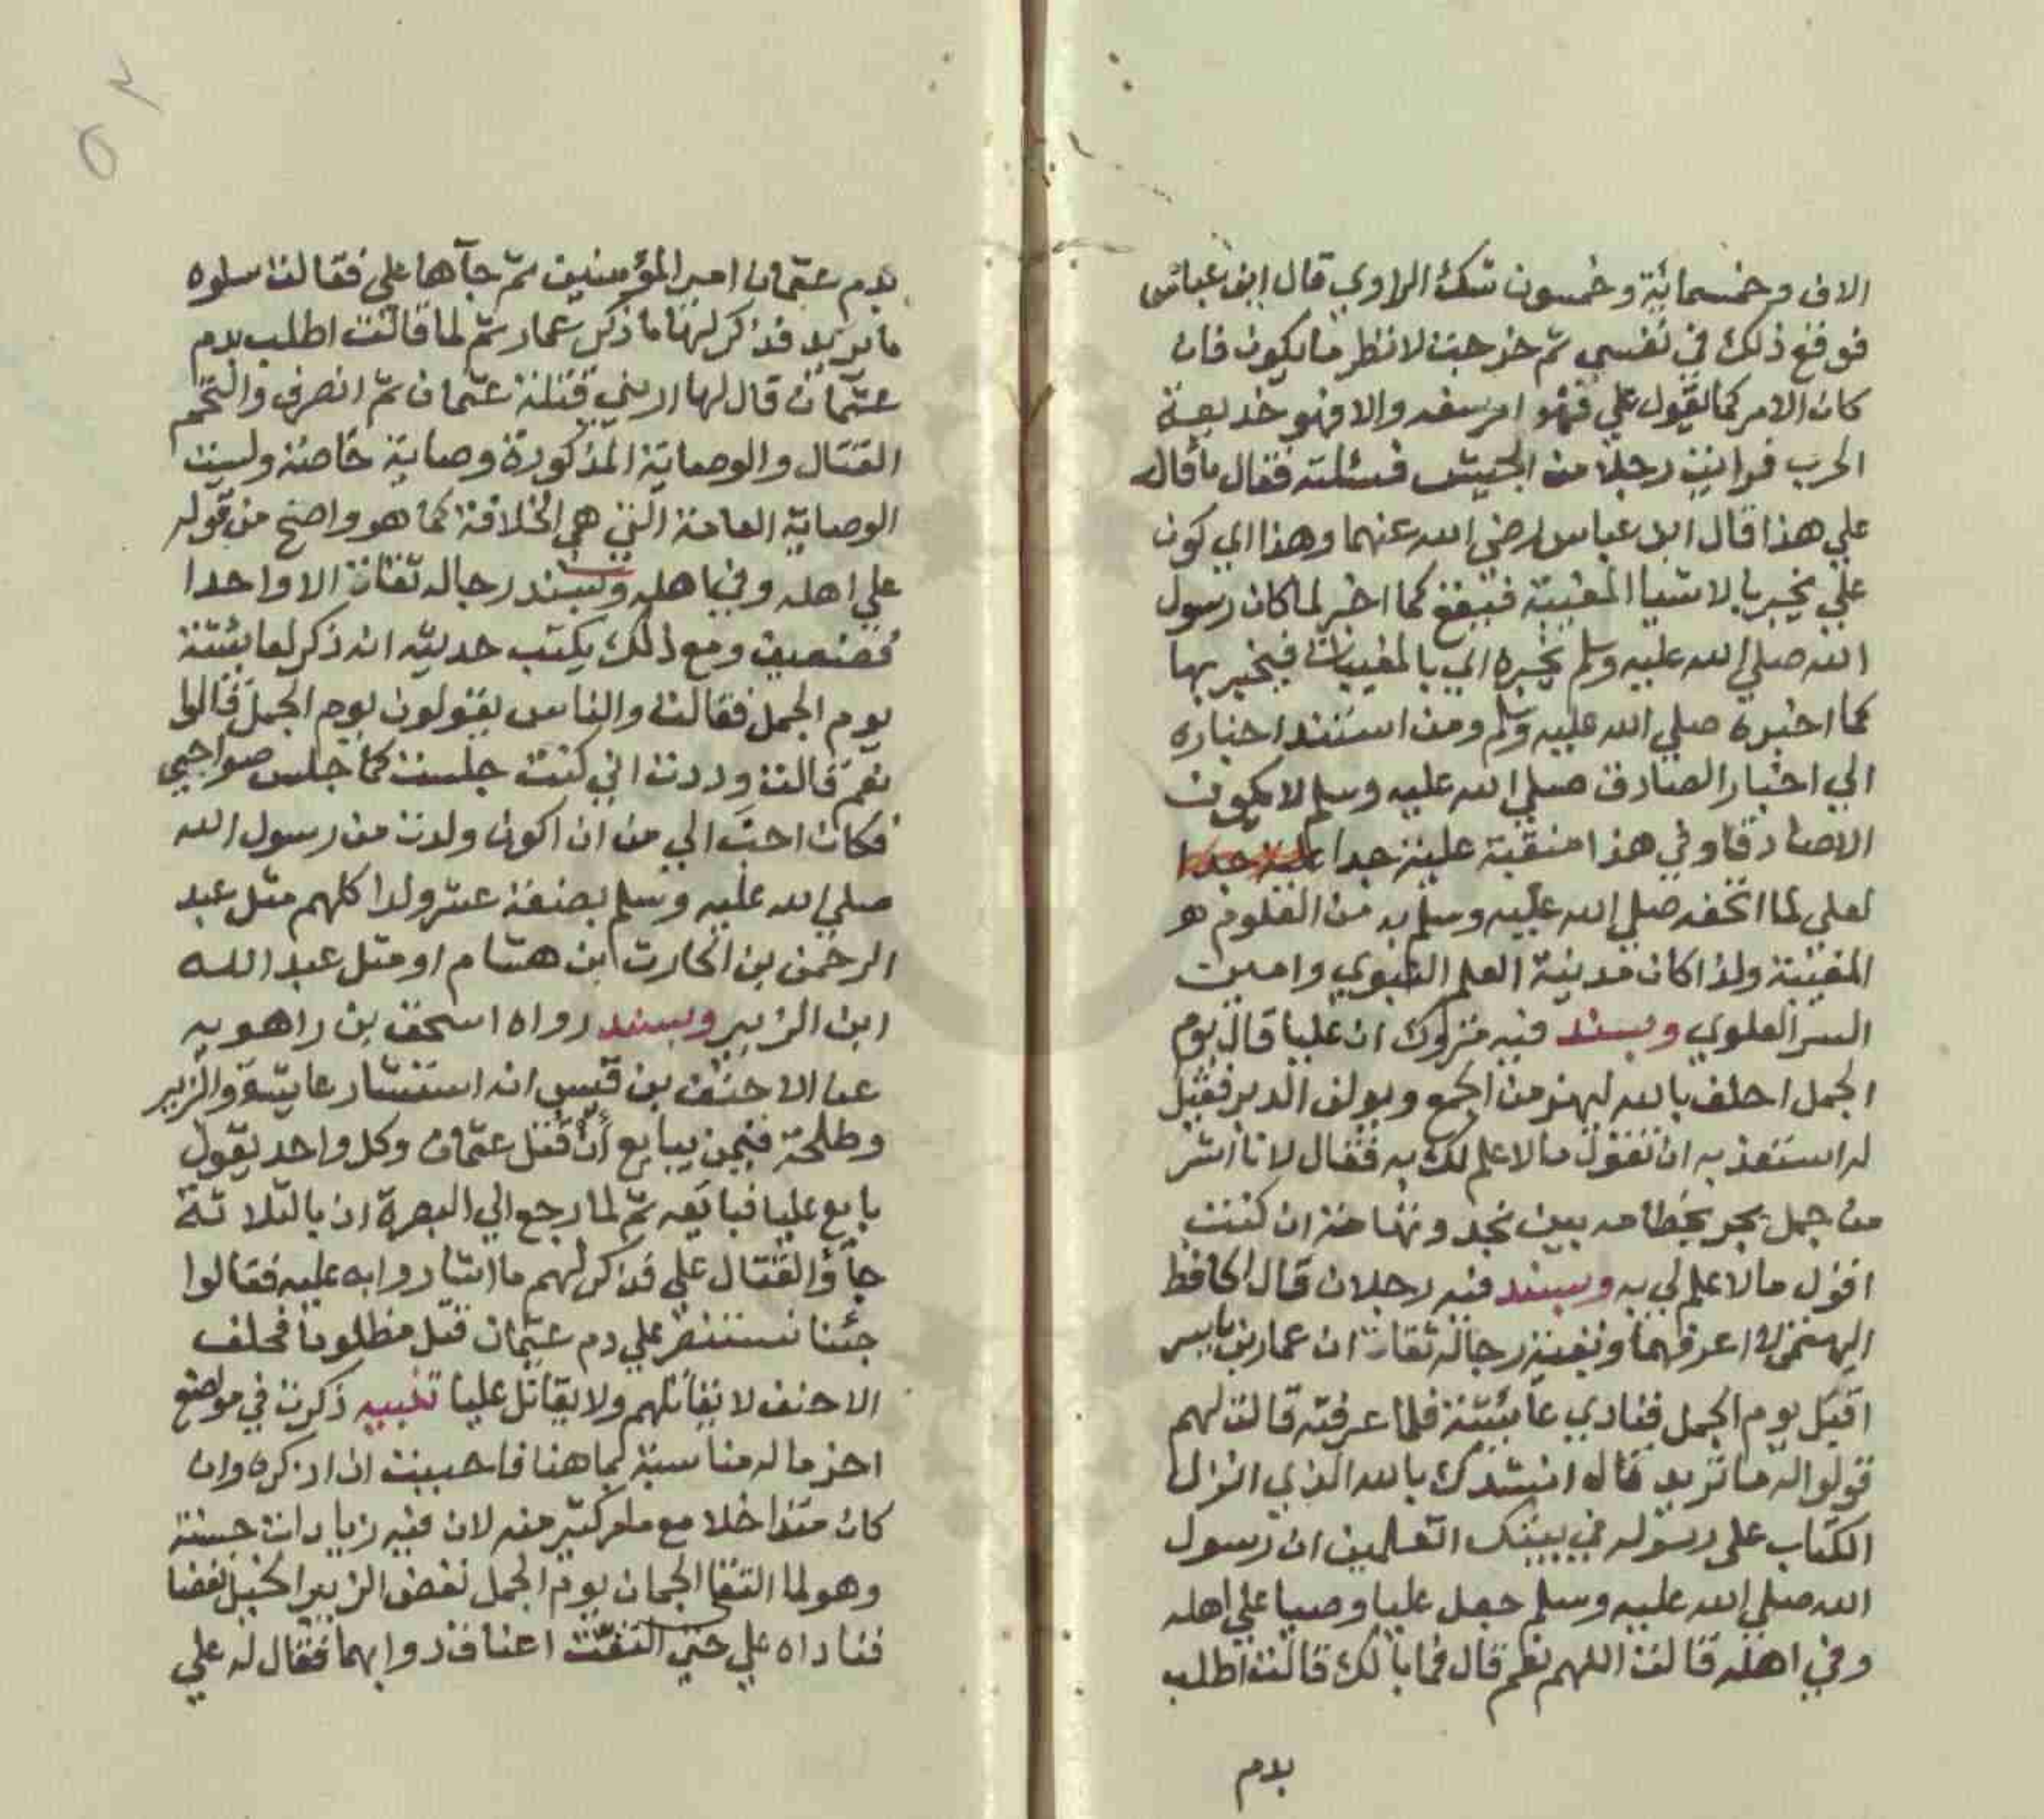 الاف وخمسمائة وخمسون شك الراوي قال ابن عباس
فوقع ذلك في نفسي ثم خرجت لانظر ما يكون فان
كان الامر كما يقول علي فهو امر سفه والا فهو خديعة
الحرب فرايت رجلا من الجيش فسئلته فقال ما قال
علي هذا قال ابن عباس رضي الله عنهما وهذا اي كون
علي يخبر بالاشيا المغيبة فيقع كما اخبر لما كان رسول
الله صلي الله عليه وسلم يخبره اي بالمغيبات فيخبر بها
كما اخبره صلي الله عليه وسلم ومن استند اخباره
الي اخبار الصادق صلي الله عليه وسلم لا يكون
الا صادقا وفي هذا منقبة علية جدا علية جدا
لعلي لما اتحفه صلي الله عليه وسلم به من العلوم
المغيبة ولذا كان مدينة العلم النبوي وامين
السر العلوي وبسند فيه متروك ان عليا قال يوم
الجمل احلف بالله ليهزمن الجمع ويولن الدبر فقيل
له استعذ به ان تقول ما لا علم لك به فقال لانا اشر
من جمل يجر بخطامه بين نجد وتهامة ان كنت
اقول ما لا علم لي به وبسند فيه رجلان قال الحافظ
الهيتمي لا اعرفهما وبقية رجاله ثقات ان عمار بن ياسر
اقبل يوم الجمل فنادي عائشة فلما عرفته قالت لهم
قولوا له ما تريد قال انشدك بالله الذي انزل
الكتاب على رسوله في بيتك اتعلمين ان رسول
الله صلي الله عليه وسلم جعل عليا وصيا علي اهله
وفي اهله قالت اللهم نعم قال فما بالك قالت اطلب
بدم
بدم عثمان امير المؤمنين ثم جآها علي فقالت سلوه
ما يريد فذكر لها ما ذكر عمار ثم لما قالت اطلب بدم
عثمان قال لها اريني قتلة عثمان ثم انصرف والتحم
القتال والوصاية المذكورة وصاية خاصة وليست
الوصاية العامة التي هي الخلافة كما هو واضح من قوله
علي اهله وفي اهله وبسند رجاله ثقات الا واحدا
فضعيف ومع ذلك يكتب حديثه انه ذكر لعائشة
يوم الجمل فقالت والناس يقولون يوم الجمل قالوا
نعم قالت وددت اني كنت جلست كما جلس صواحبي
فكان احب الي من ان اكون ولدت من رسول الله
صلي الله عليه وسلم بضعة عشر ولدا كلهم مثل عبد
الرحمن بن الحارث ابن هشام او مثل عبد الله
ابن الزبير وبسند رواه اسحق بن راهويه
عن الاحنف بن قيس انه استشار عايشة والزبير
وطلحة فيمن يبايع ان قتل عثمان وكل واحد يقول
بايع عليا فبايعه ثم لما رجع الي البصرة اذ بالثلاثة
جآؤا لقتال علي فذكر لهم ما اشاروا به عليه فقالوا
جئنا نستنصر علي دم عثمان قتل مظلوما فحلف
الاحنف لا يقاتلهم ولا يقاتل عليا تنبيه ذكرت في موضع
اخر ما له مناسبة بما هنا فاحببت ان اذكره وان
كان متداخلا مع ما مر كثير منه لان فيه زيادات حسنة
وهو لما التقا الجمعان يوم الجمل نهض الزبير
فناداه علي حتي التقت اعناق دوابهما فقال له علي